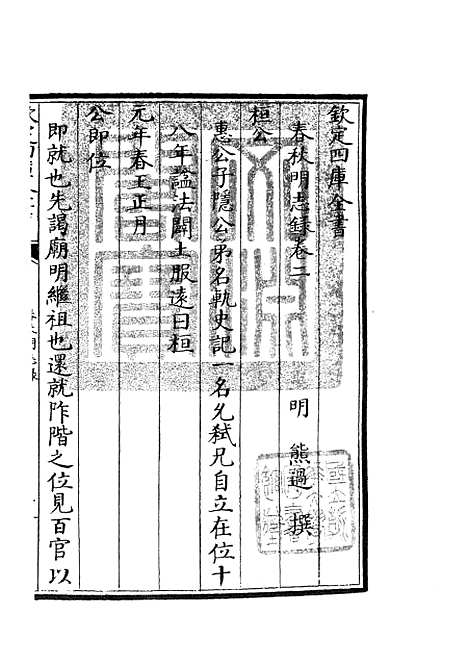 欽定四庫全書
春秋明志錄卷二
明 熊過 撰
桓公
惠公子隱公弟名軌史記一名允弑兄自立在位十
八年諡法闢土服遠曰桓
元年春王正月
公即位
即就也先謁廟明繼祖也還就阼階之位見百官以